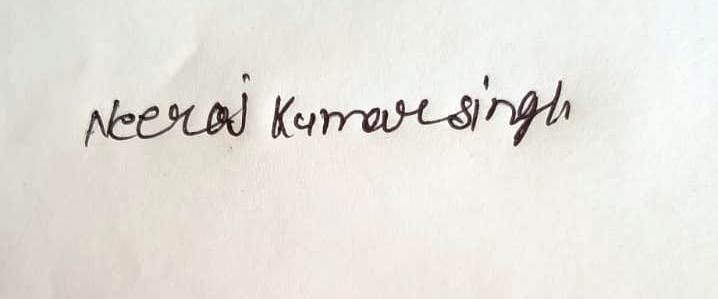 Neeraj Kumar singh